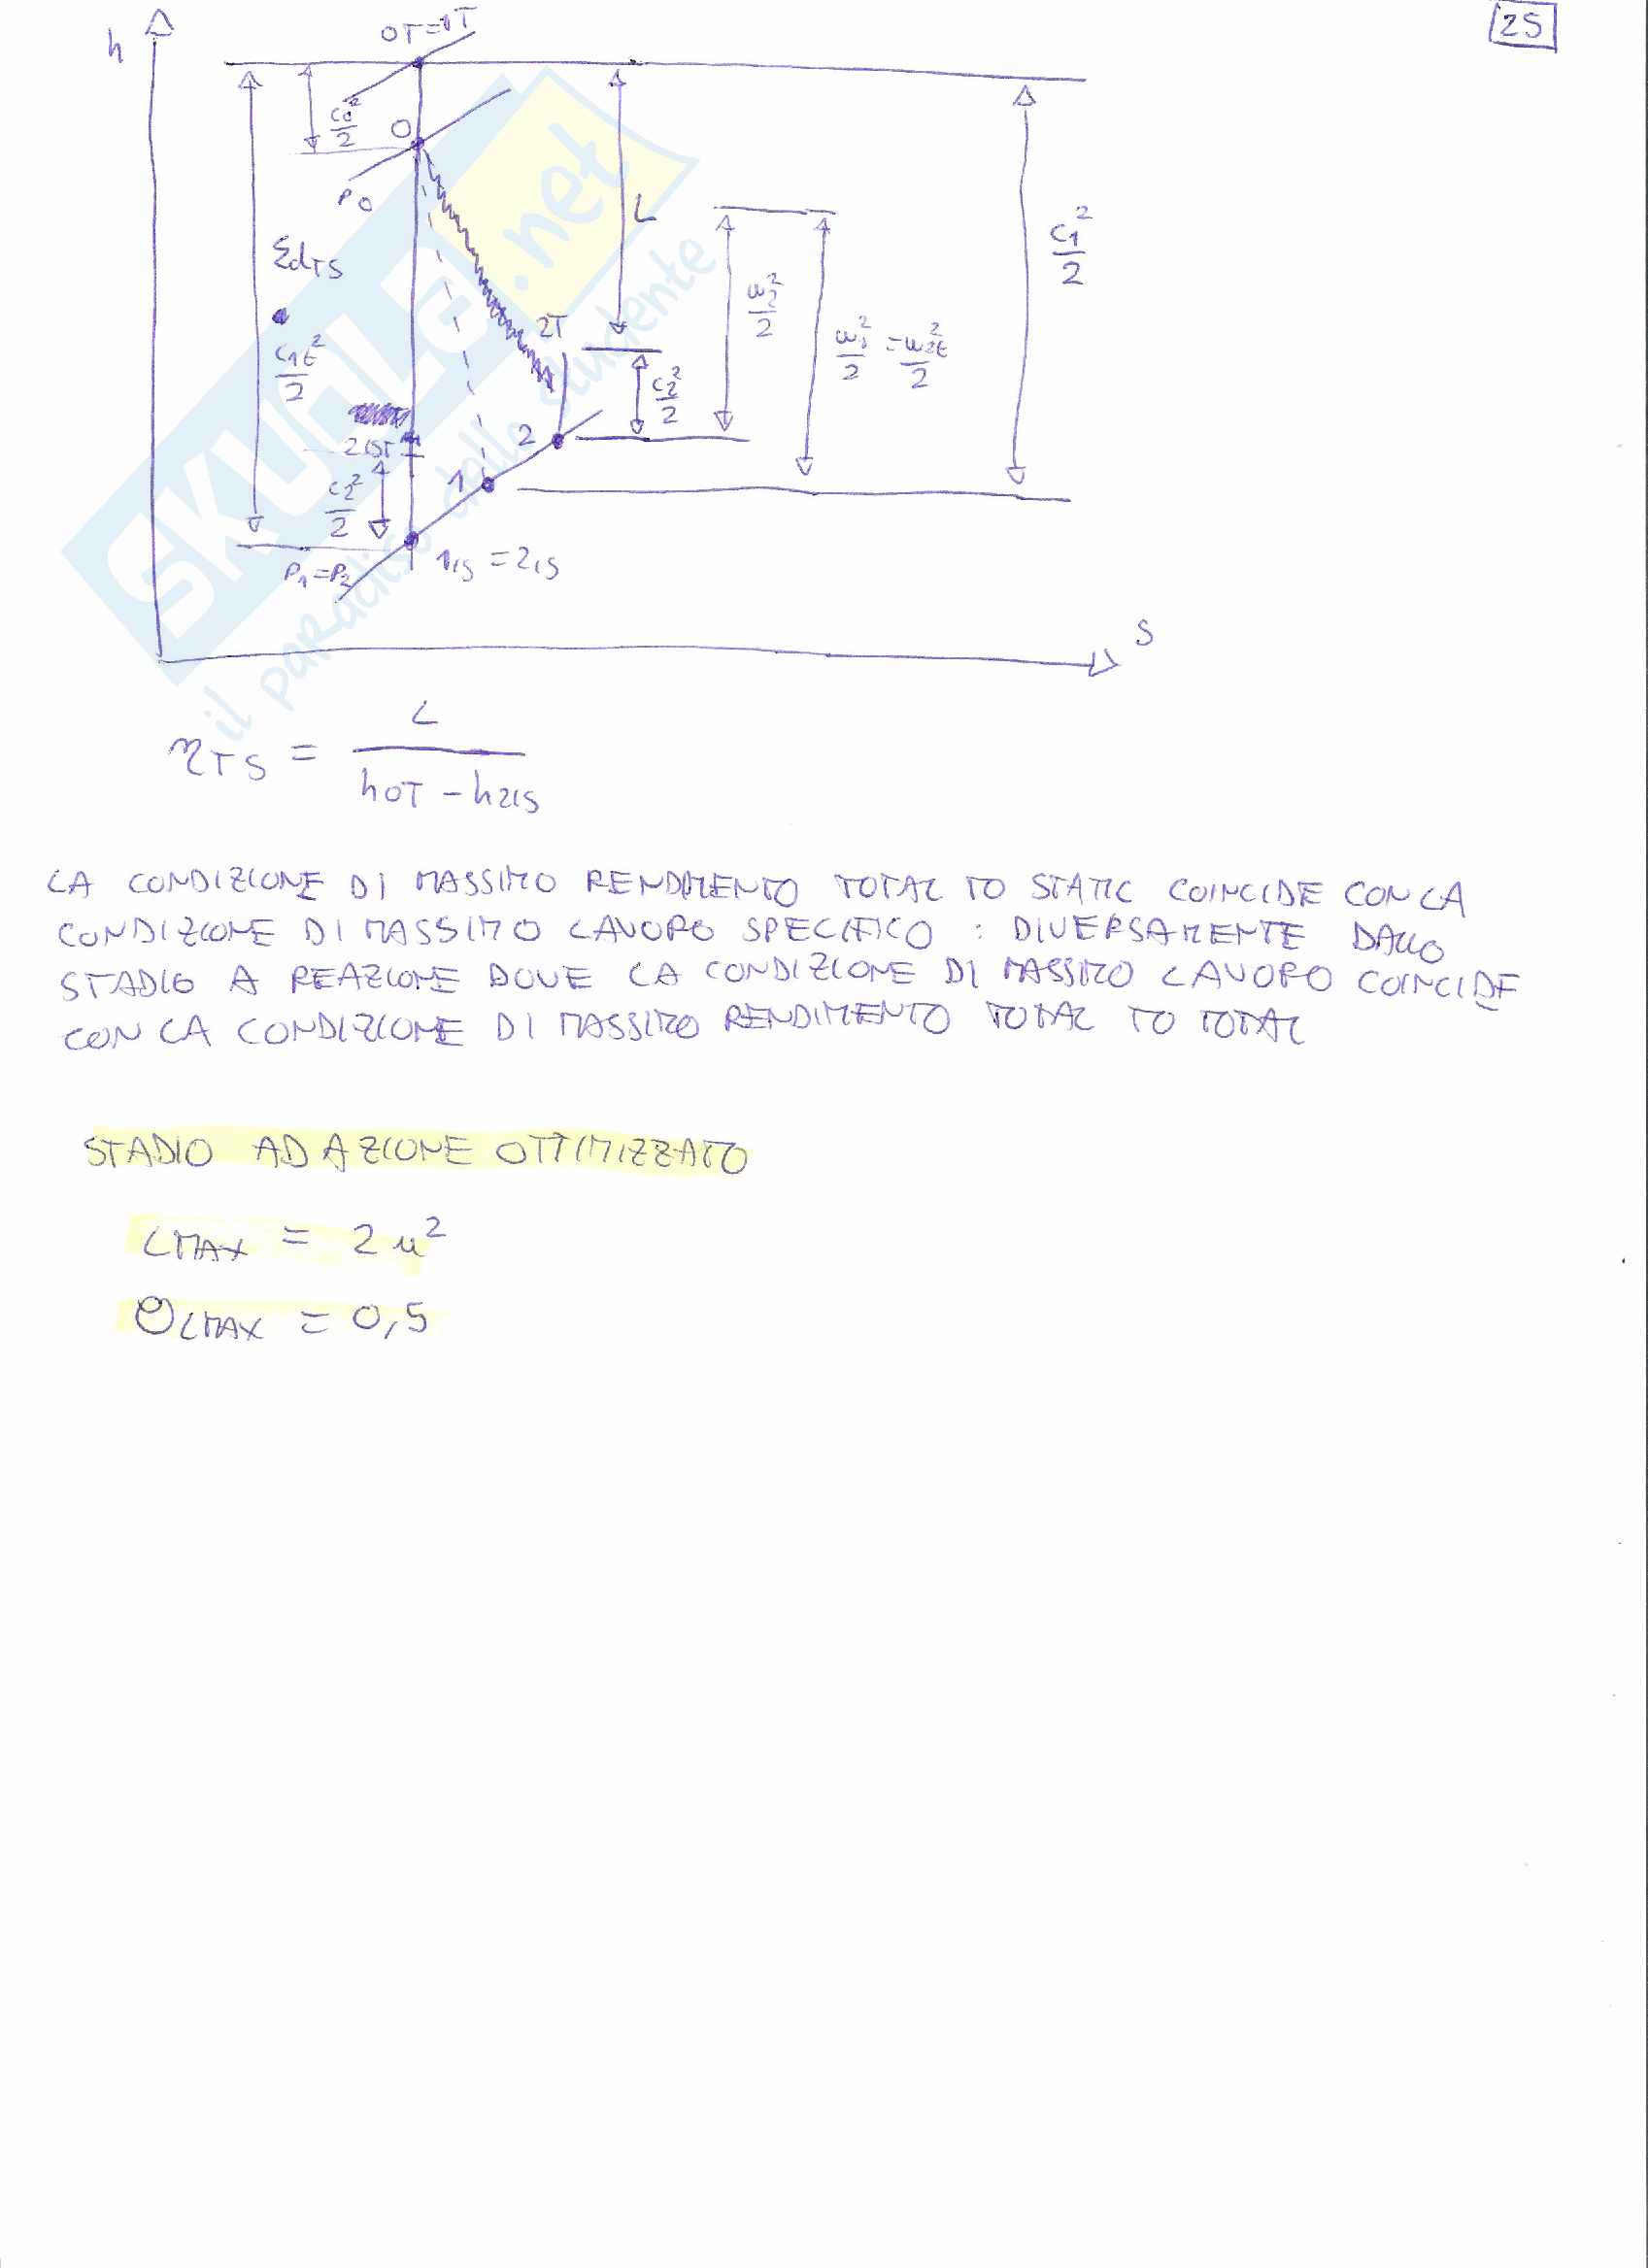 25
h
0T=1T
c0²/2
0
P0
L
c1²/2
ΣdTS
w2²/2
2T
w1²/2 = w2t²/2
c1t²/2
c2²/2
2
2isT
1
c2²/2
1is = 2is
P1=P2
S
SKUOLA.net
il paradiso dello studente
ηTS = L / (h0T - h2is)
LA CONDIZIONE DI MASSIMO RENDIMENTO TOTAL TO STATIC COINCIDE CON LA
CONDIZIONE DI MASSIMO LAVORO SPECIFICO : DIVERSAMENTE DALLO
STADIO A REAZIONE DOVE LA CONDIZIONE DI MASSIMO LAVORO COINCIDE
CON LA CONDIZIONE DI MASSIMO RENDIMENTO TOTAL TO TOTAL
STADIO AD AZIONE OTTIMIZZATO
LMAX = 2u²
ΘLMAX = 0,5